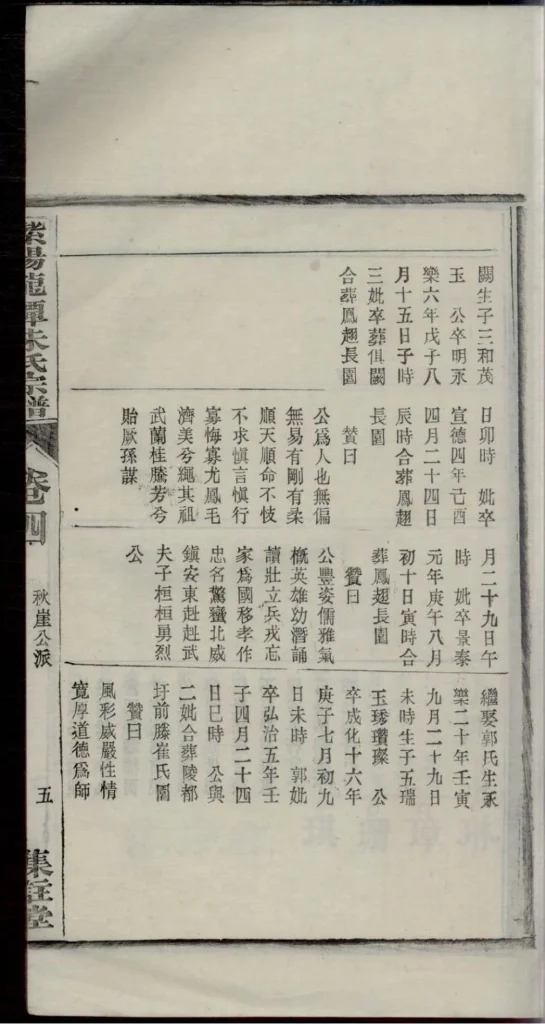 闕生子三和茂
玉　公卒明永
樂六年戊子八
月十五日子時
三妣卒葬俱闕
合葬鳳翹長園
日卯時　妣卒
宣德四年己酉
四月二十四日
辰時合葬鳳翹
長園
贊曰
公爲人也無偏
無易有剛有柔
順天順命不忮
不求愼言愼行
寡悔寡尤鳳毛
濟美兮繩其祖
武蘭桂騰芳兮
貽厥孫謀
月二十九日午
時　妣卒景泰
元年庚午八月
初十日寅時合
葬鳳翹長園
贊曰
公豐姿儒雅氣
概英雄幼潛誦
讀壯立兵戎忘
家爲國移孝作
忠名驚蠻北威
鎭安東赳赳武
夫子桓桓勇烈
公
繼娶郭氏生永
樂二十年壬寅
九月二十九日
未時生子五瑞
玉琇瓚璨　公
卒成化十六年
庚子七月初九
日未時　郭妣
卒弘治五年壬
子四月二十四
日巳時　公與
二妣合葬陵都
圩前滕崔氏園
贊曰
風彩威嚴性情
寬厚道德爲師
紫陽龍潭朱氏宗譜
卷四
秋崖公派
五
集註堂